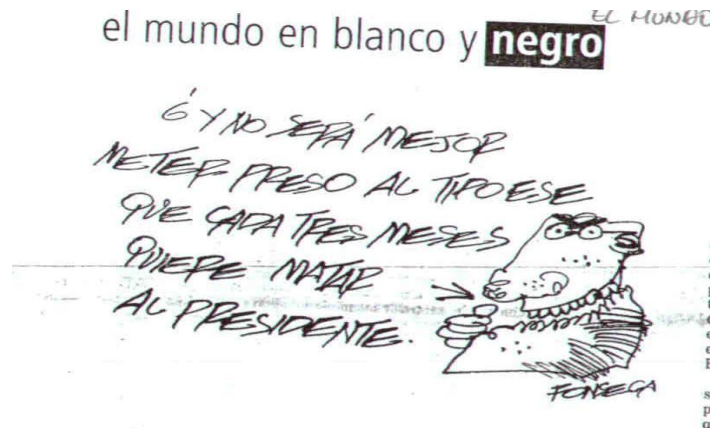 EL MUNDO
el mundo en blanco y negro
¿Y NO SERÁ MEJOR
METER PRESO AL TIPO ESE
QUE CADA TRES MESES
QUIERE MATAR
AL PRESIDENTE.
FONSECA